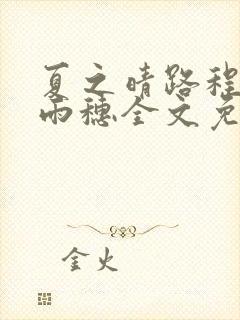 夏之晴路程
雨穗全文免
金火